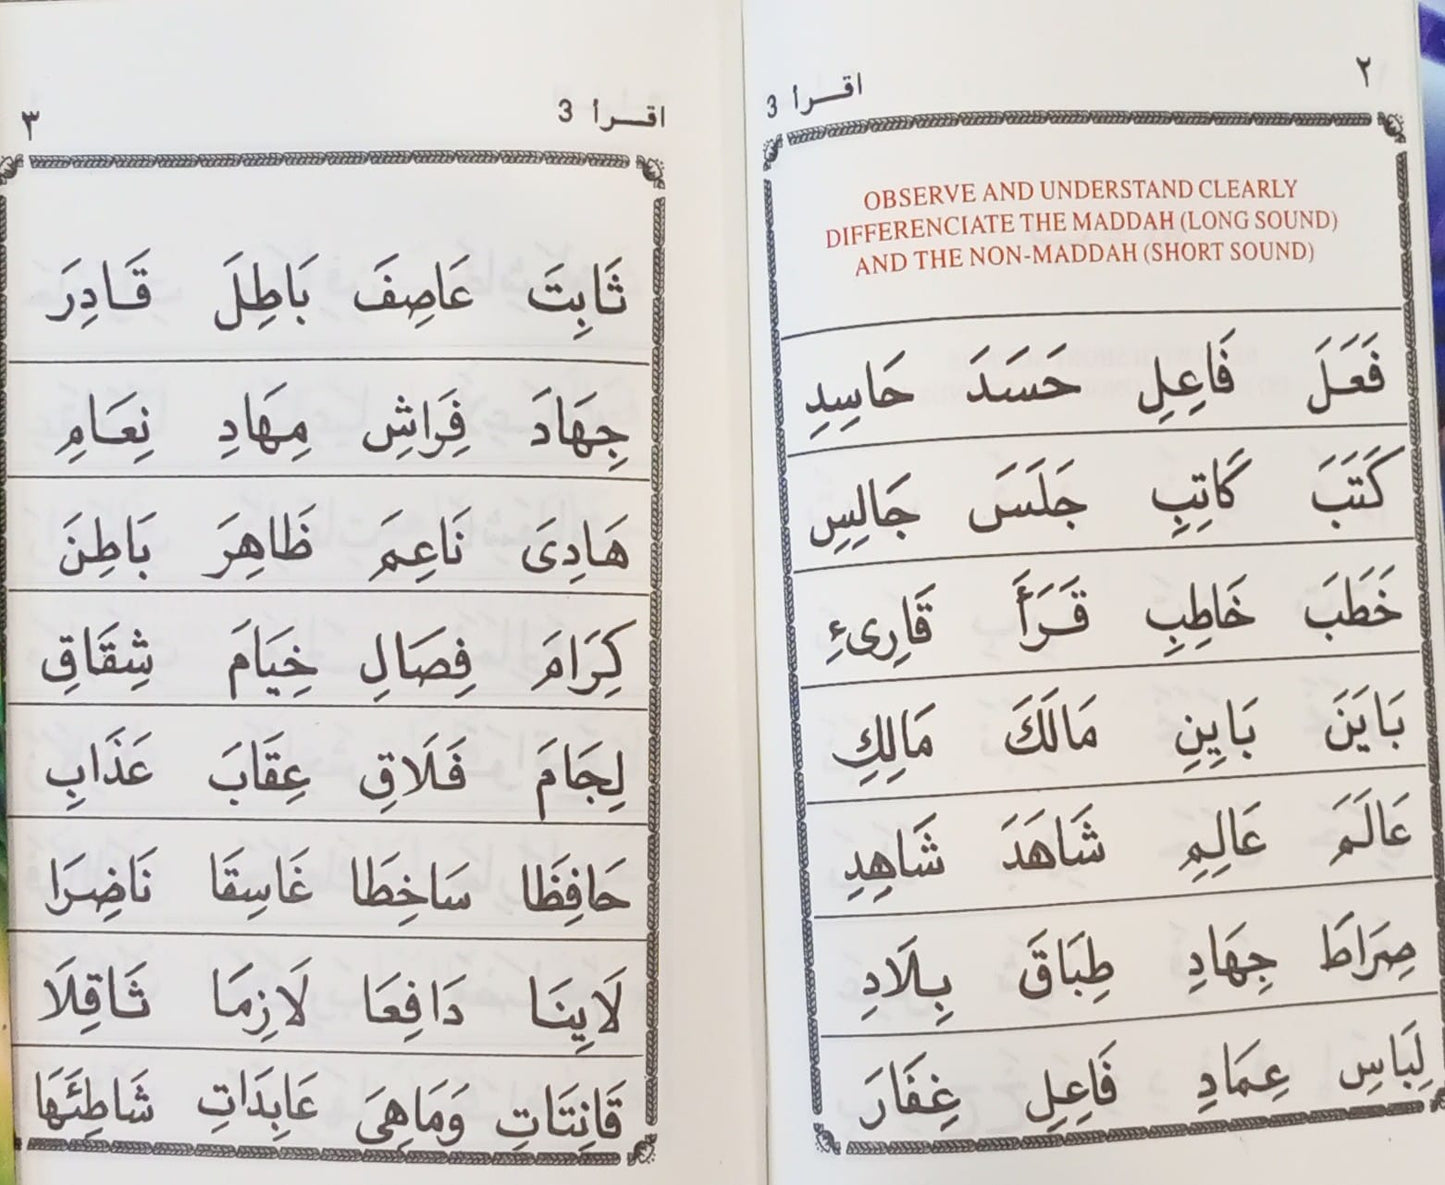 ٢
اقرأ 3
OBSERVE AND UNDERSTAND CLEARLY
DIFFERENCIATE THE MADDAH (LONG SOUND)
AND THE NON-MADDAH (SHORT SOUND)
فَعَلَ فَاعِلِ حَسَدَ حَاسِدِ
كَتَبَ كَاتِبِ جَلَسَ جَالِسِ
خَطَبَ خَاطِبِ قَرَأَ قَارِىءِ
بَايَنَ بَايِنِ مَالَكَ مَالِكِ
عَالَمَ عَالِمِ شَاهَدَ شَاهِدِ
صِرَاطَ جِهَادِ طِبَاقَ بِلَادِ
لِبَاسِ عِمَادِ فَاعِلِ غِفَارَ
٣
اقرأ 3
ثَابِتَ عَاصِفَ بَاطِلَ قَادِرَ
جِهَادَ فِرَاشِ مِهَادِ نِعَامِ
هَادِىَ نَاعِمَ ظَاهِرَ بَاطِنَ
كِرَامَ فِصَالِ خِيَامَ شِقَاقِ
لِجَامَ فَلَاقِ عِقَابَ عَذَابِ
حَافِظَا سَاخِطَا غَاسِقَا نَاضِرَا
لَايِنَا دَافِعَا لَازِمَا ثَاقِلَا
قَانِتَاتِ وَمَاهِىَ عَابِدَاتِ شَاطِئَهَا